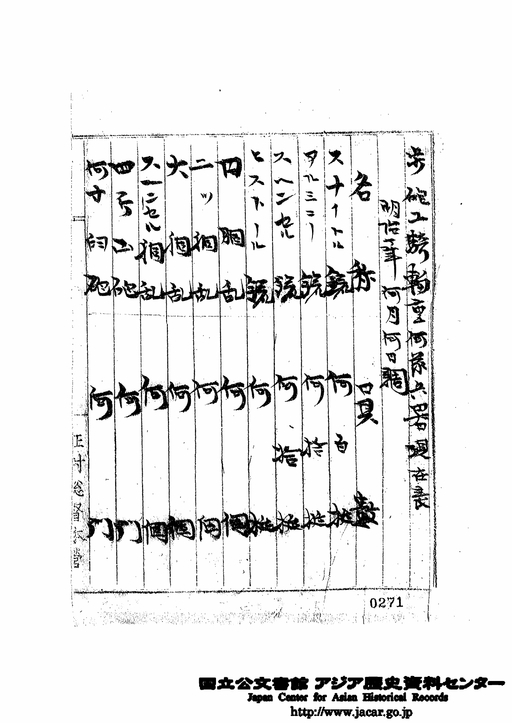 歩砲工騎輜重何隊兵器現在表
明治　年何月何日調
名称　員数
スナイトル銃　何百挺
アルミニー銃　何拾挺
スヘンセル銃　何拾挺
ヒストール銃　何挺
四胴乱　何個
二ツ胴乱　何個
大胴乱　何個
スヘンセル胴乱　何個
四斤山砲　何門
何寸臼砲　何門
0271
国立公文書館 アジア歴史資料センター
Japan Center for Asian Historical Records
http://www.jacar.go.jp